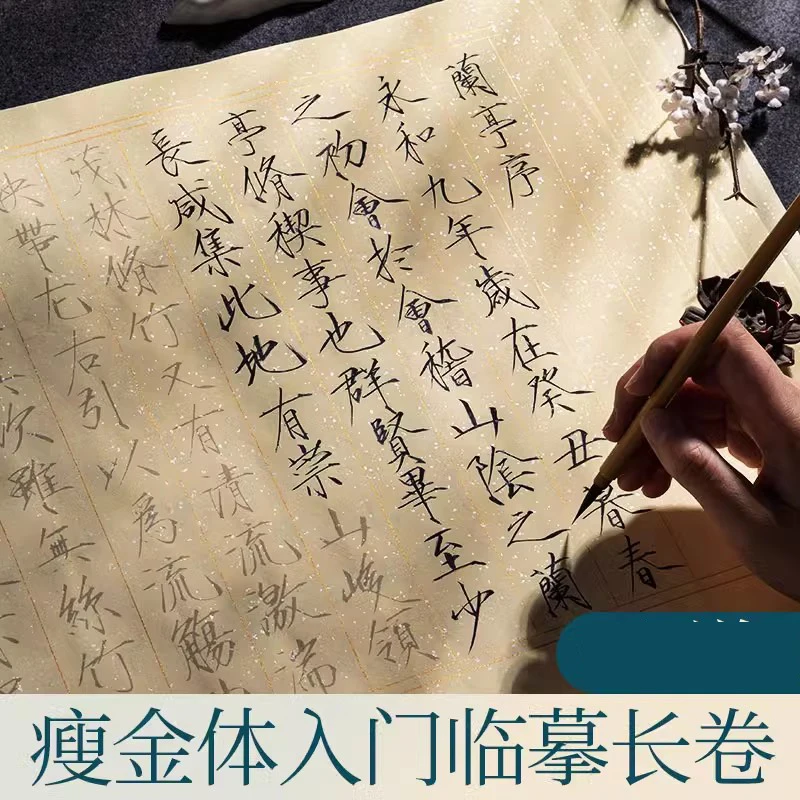 蘭亭序
永和九年歲在癸丑暮春
之初會於會稽山陰之蘭
亭脩稧事也群賢畢至少
長咸集此地有崇山峻領
茂林脩竹又有清流激湍
映帶左右引以爲流觴
次雖無絲竹
瘦金体入门临摹长卷